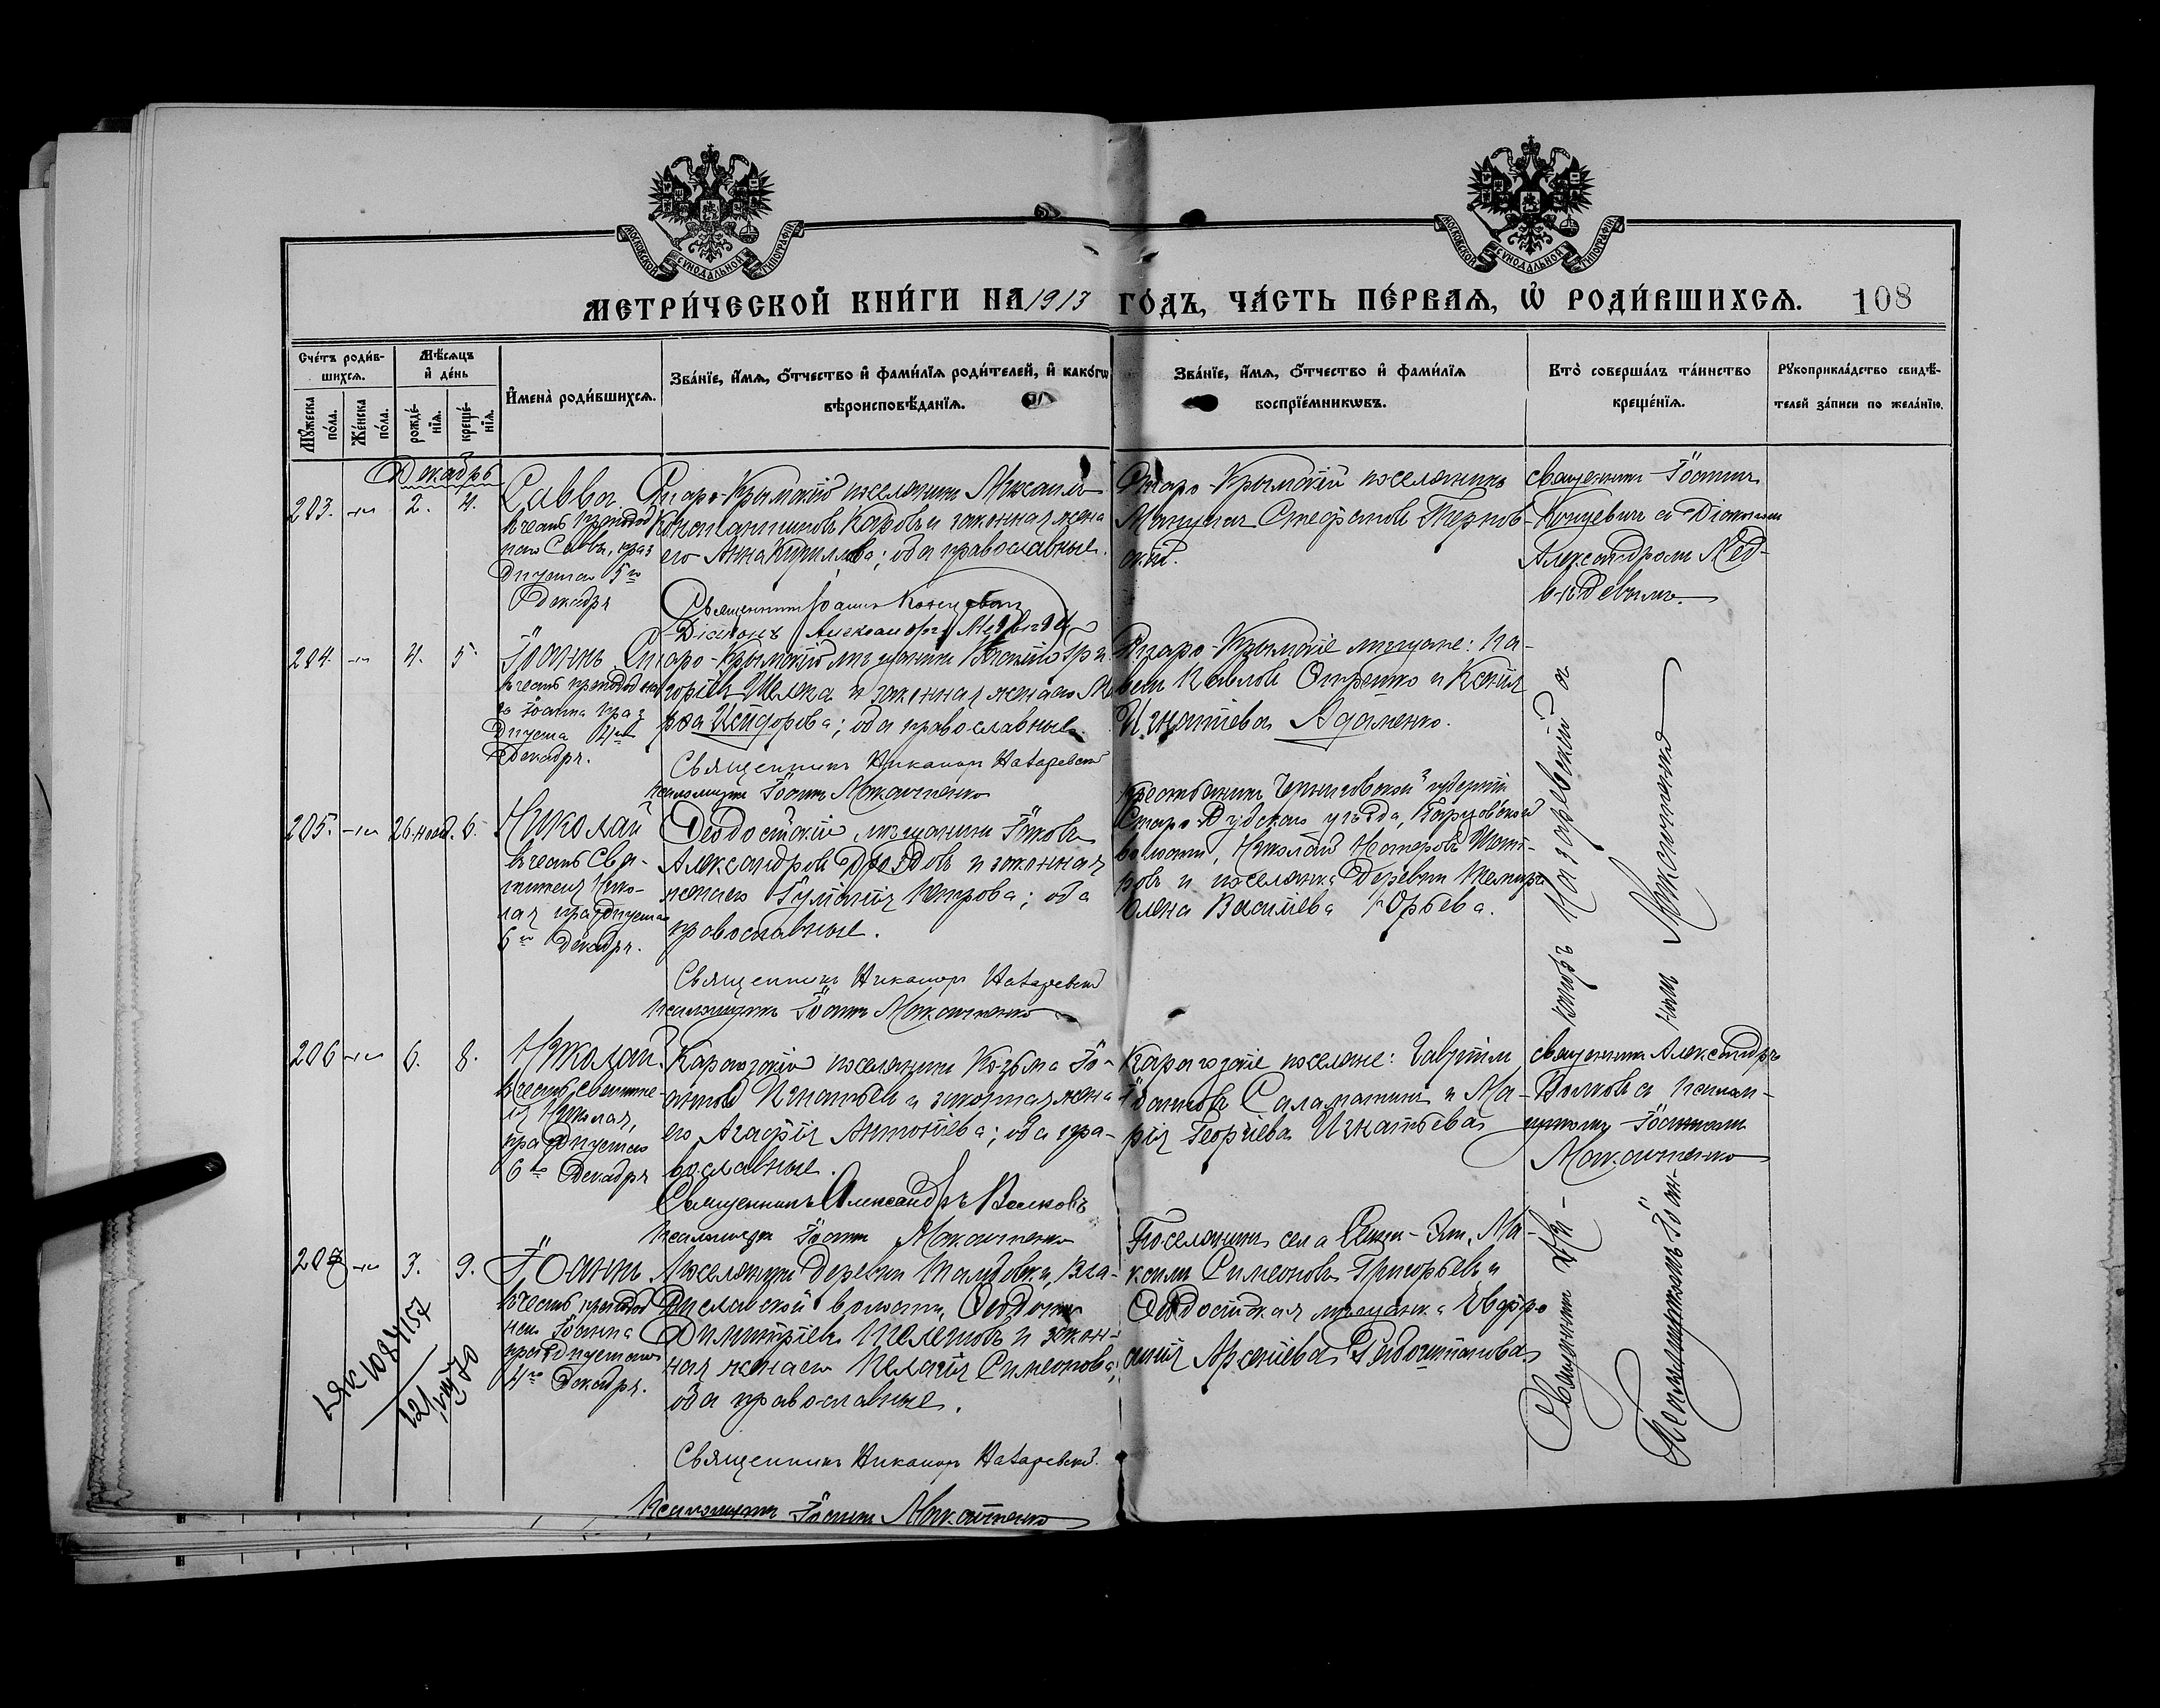 МОСКОВСКОЙ СѴНОДАЛЬНОЙ ТИПОГРАФІИ
МОСКОВСКОЙ СѴНОДАЛЬНОЙ ТИПОГРАФІИ
МЕТРИ́ЧЕСКОЙ КНИ́ГИ НА 1913 ГО́ДЪ, ЧА́СТЬ ПЕ́РВАЯ, Ѡ РОДИ́ВШИХСЯ. 108
Сче́тъ роди́в-
шихся.
Мѣ́сяцъ
и де́нь
Мꙋ́жеска по́ла.
Же́нска по́ла.
рожде́-
нїя.
креще́-
нїя.
Имена̀ роди́вшихся.
Зва́нїе, и́мя, о́тчество и фами́лїя роди́телей, и како́гѡ
вѣроисповѣ́данїя.
Зва́нїе, и́мя, о́тчество и фами́лїя
воспрїе́мникѡвъ.
Кто̀ соверша́лъ та́инство
креще́нїя.
Рꙋкоприкла́дство свидѣ́-
телей за́писи по жела́нїю.
Декабрь
203. 2. 4.
Савва
въ честь преподоб
наго Саввы, праз
днуемаго 5го
Декабря
Старо-Крымскій поселянинъ Михаилъ
Константиновъ Каровъ и законная жена
его Анна Кириллова; оба православные.
Священникъ Іоаннъ Концевичъ
Діаконъ Александръ Медвѣдевъ
Старо-Крымскій поселянинъ
Стефановъ Тернов-
скій.
священникъ Іоаннъ
Концевичъ съ Діакономъ
Александромъ Мед-
вѣдевымъ.
204. 4. 5.
Іоаннъ
въ честь преподобна
го Іоанна праз
днуема 4го
Декабря.
Старо-Крымскій мѣщанинъ Гри
горіевъ и законная жена его
Исидорова; оба православные.
Священникъ Никаноръ Назаревскій
Псаломщикъ Іоаннъ
Старо-Крымскіе мѣщане: Па-
велъ Павловъ и Ксенія
Игнатіева Адаменко.
205. 26. нояб. 6.
Николай
въ честь Свя-
тителя Нико-
лая празднуемаго
6го Декабря.
Ѳеодосійскій мѣщанинъ Іаковъ
Александровъ Дроздовъ и законная
жена его Іуліанія Петрова; оба
православные.
Священникъ Никаноръ Назаревскій
Псаломщикъ Іоаннъ
крестьянинъ Черниговской губерніи
Стародубскаго уѣзда,
волости, Николай
и поселянка деревни
Елена Васильева Юрьева.
206 6. 8.
Николай
въ честь Святите-
ля Николая,
празднуемаго
6го Декабря
Карагозскій поселянинъ Козьма Іо-
анновъ Игнатьевъ и законная жена
его Агафія Антоніева; оба пра-
вославные.
Священникъ Александръ Волковъ
Псаломщикъ Іоаннъ
Карагозскіе поселяне: Гавріилъ
Іоанновъ Саламатинъ и Ма-
рія Георгіева Игнатьева
священникъ Александръ
Волковъ съ псалом-
щикомъ Іоанномъ
207 3. 9.
Іоаннъ
въ честь преподоб
наго Іоанна
празднуемаго
4го Декабря.
Поселянинъ деревни Вла-
диславской волости,
Димитріевъ Шелестовъ и закон-
ная жена его Пелагія Симеонова;
оба православные.
Священникъ Никаноръ Назаревскій.
Псаломщикъ Іоаннъ
Поселянинъ села Ма-
Симеоновъ Григорьевъ и
Ѳеодосійская мѣщанка Евфро
синія Арсеніева
Священникъ Ни-
каноръ Назаревскій съ
Псаломщикомъ Іоан-
номъ